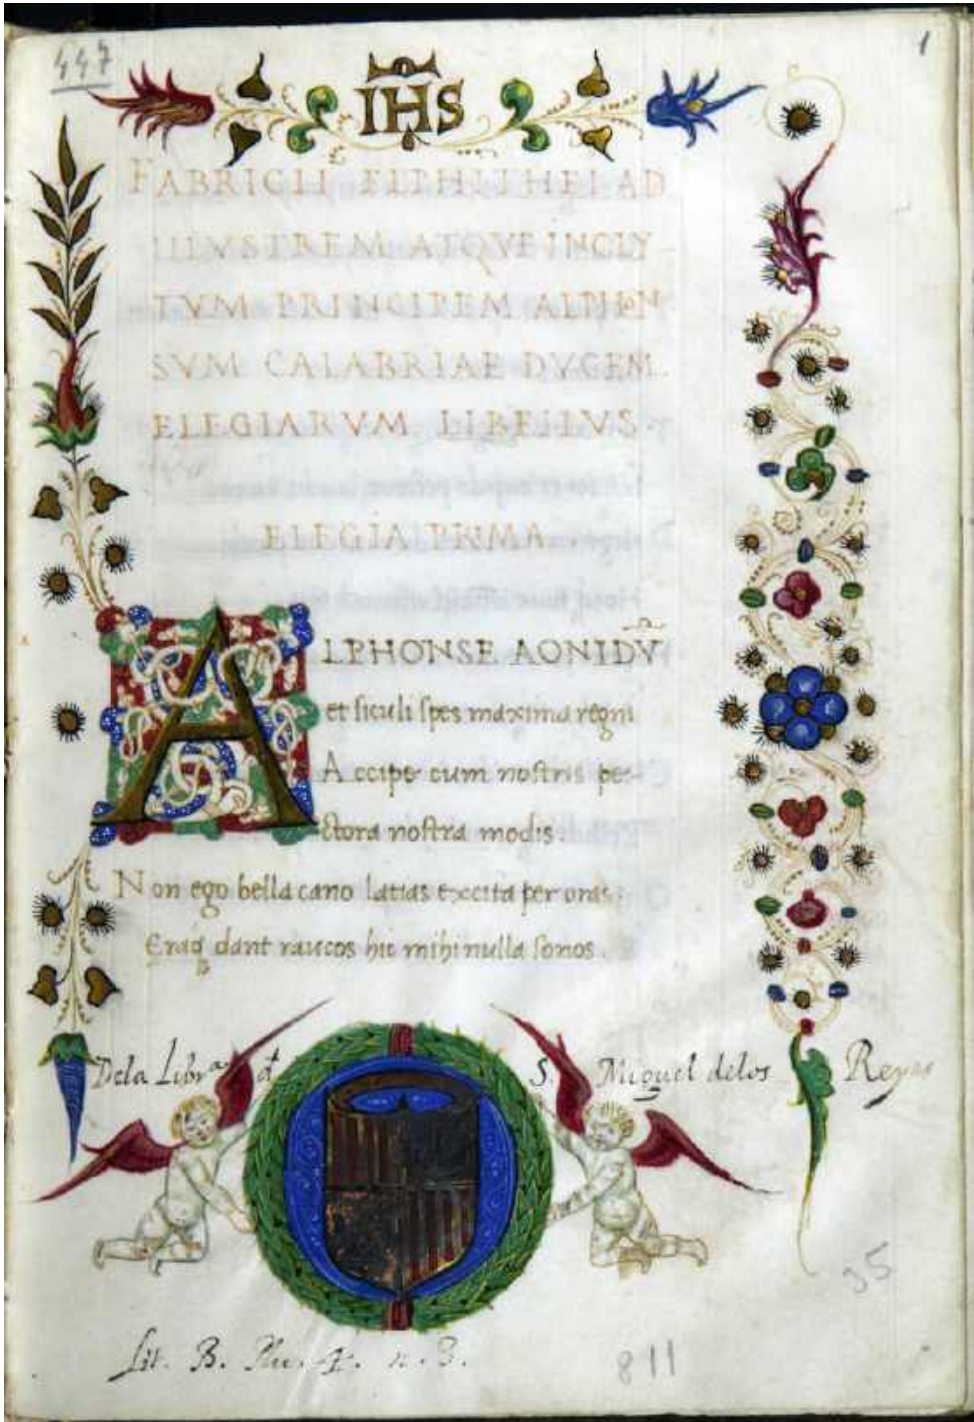 447
1
IHS
FABRICII EIPHITHEI AD
ILLVSTREM ATQVE INCLY
TVM PRINCIPEM ALPHON
SVM CALABRIAE DVCEM
ELEGIARVM LIBELLVS·
ELEGIA PRIMA.
ALPHONSE AONIDV̄
et siculi spes maxima regni
Accipe cum nostris pe-
ctora nostra modis.
Non ego bella cano latias excita per oras
Eraq dant raucos hic mihi nulla sonos.
Dela Libra d S. Miguel delos Reyes
35
Lit. B. Plu. 4. n. 8.
811